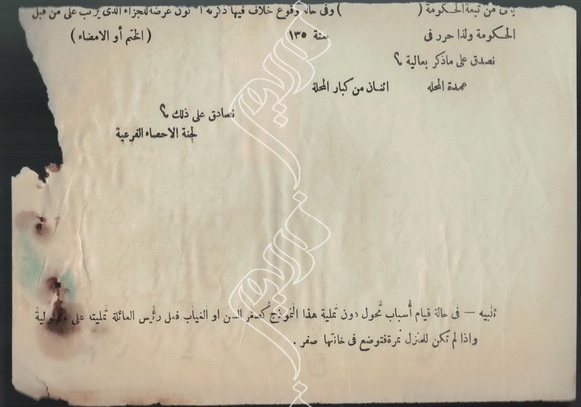 بأنى من تبعة الحكومة (          ) وفى حالة وقوع خلاف فيما ذكرته أكون عرضة للجزاء الذى يترتب على من قبل
الحكومة ولذا حرر فى          سنة ١٣٥          ( الختم أو الامضاء )
نصدق على ماذكر بعاليه ؟
عمدة المحله          اثنان من كبار المحلة
نصادق على ذلك ؟
لجنة الاحصاء الفرعية
تنبيه — فى حالة قيام أسباب تحول دون تملية هذا النموذج كصغر السن او الغياب فعلى رئيس العائلة تمليته على مسؤولية
واذا لم تكن للمنزل نمرة فتوضع فى خانتها صفر .